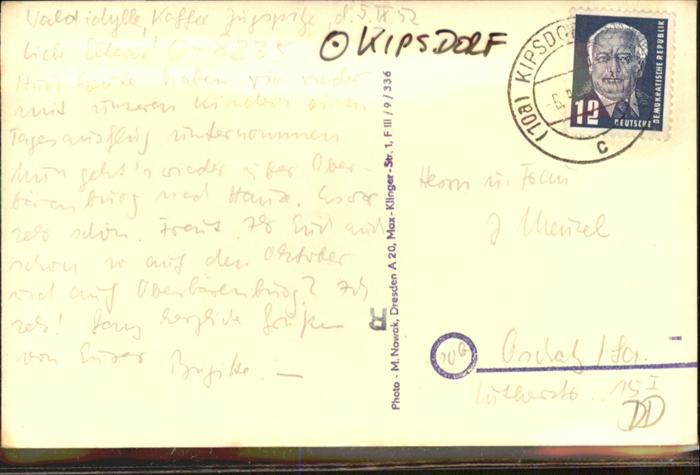 Waldidylle, Kaffee Zugspitze, d. 5.IX.52
Liebe Eltern! G-8235
KIPSDORF
Auch heute haben wir wieder
mit unseren Kindern einen
Tagesausflug unternommen
Nun geht's wieder über Ober-
bärenburg nach Hause. Es war
sehr schön. Freut Ihr Euch auch
schon so auf den Oktober
und auf Oberbärenburg? Ich
sehr! Ganz herzliche Grüße
von Eurer Brigitte. —
Photo - M. Nowak, Dresden A 20, Max-Klinger-Str. 1, F III/9/336
(10a) KIPSDO
-6.
c
12
DEUTSCHE
DEMOKRATISCHE REPUBLIK
Herrn u. Frau
J. Menzel
10b
Oschatz/Sa.
Lutherstr. 19 I
DD